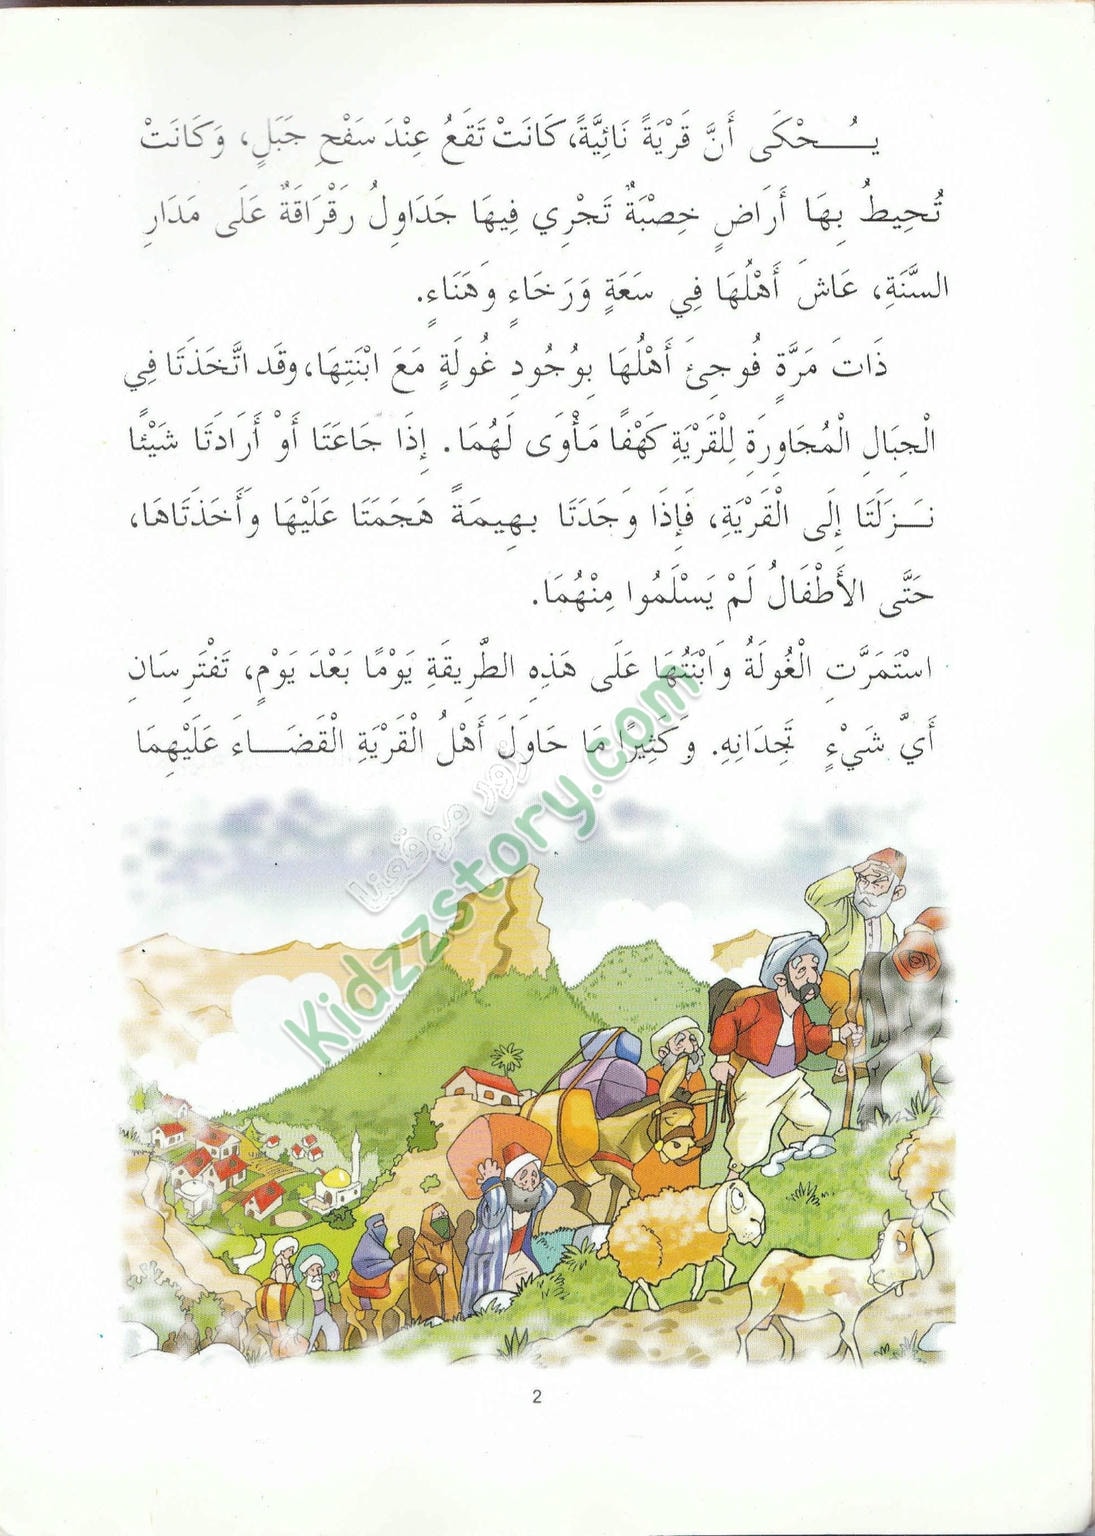 يُـــحْكَى أَنَّ قَرْيَةً نَائِيَّةً، كَانَتْ تَقَعُ عِنْدَ سَفْحِ جَبَلٍ، وَكَانَتْ
تُحِيطُ بِهَا أَرَاضٍ خِصْبَةٌ تَجْرِي فِيهَا جَدَاوِلُ رَقْرَاقَةٌ عَلَى مَدَارِ
السَّنَةِ، عَاشَ أَهْلُهَا فِي سَعَةٍ وَرَخَاءٍ وَهَنَاءٍ.
ذَاتَ مَرَّةٍ فُوجِئَ أَهْلُهَا بِوُجُودِ غُولَةٍ مَعَ ابْنَتِهَا، وقَد اتَّخَذَتَا فِي
الْجِبَالِ الْمُجَاوِرَةِ لِلْقَرْيَةِ كَهْفًا مَأْوَى لَهُمَا. إِذَا جَاعَتَا أَوْ أَرَادَتَا شَيْئًا
نَـــزَلَتَا إِلَى الْقَرْيَةِ، فَإِذَا وَجَدَتَا بهِيمَةً هَجَمَتَا عَلَيْهَا وَأَخَذَتَاهَا،
حَتَّى الأَطْفَالُ لَمْ يَسْلَمُوا مِنْهُمَا.
اسْتَمَرَّتِ الْغُولَةُ وَابْنَتُهَا عَلَى هَذِهِ الطَّرِيقَةِ يَوْمًا بَعْدَ يَوْمٍ، تَفْتَرِسَانِ
أَيَّ شَيْءٍ تَجِدَانِهِ. وَكَثِيرًا مَا حَاوَلَ أَهْلُ الْقَرْيَةِ الْقَضَـــاءَ عَلَيْهِمَا
زور موقعنا
Kidzzstory.com
2